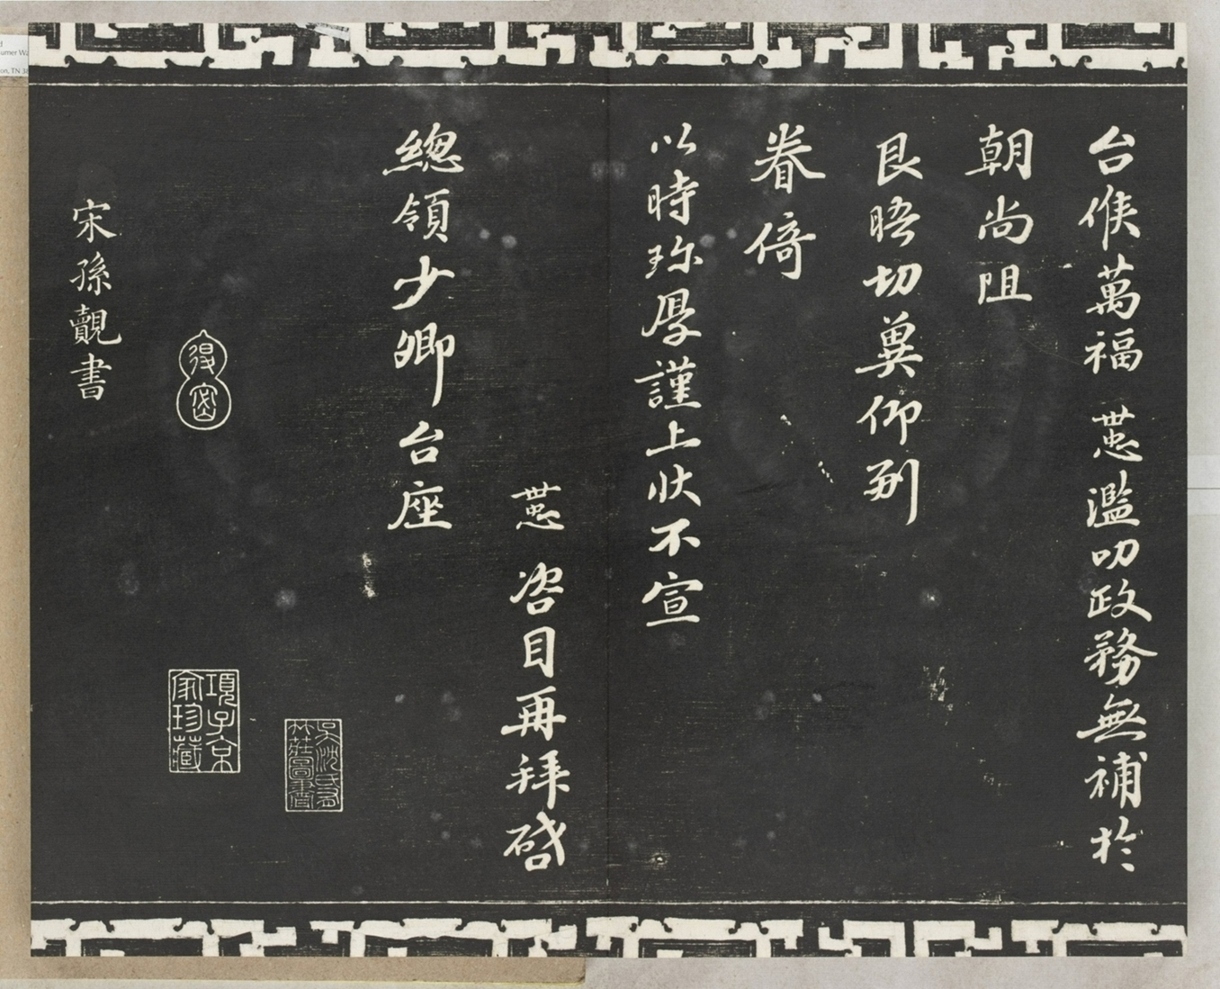 台候萬福 懋濫叨政務無補於
朝尚阻
艮晤切冀仰副
眷倚
以時珎厚謹上狀不宣
懋 咨目再拜啓
總領少卿台座
宋孫覿書
項子京
家珍藏